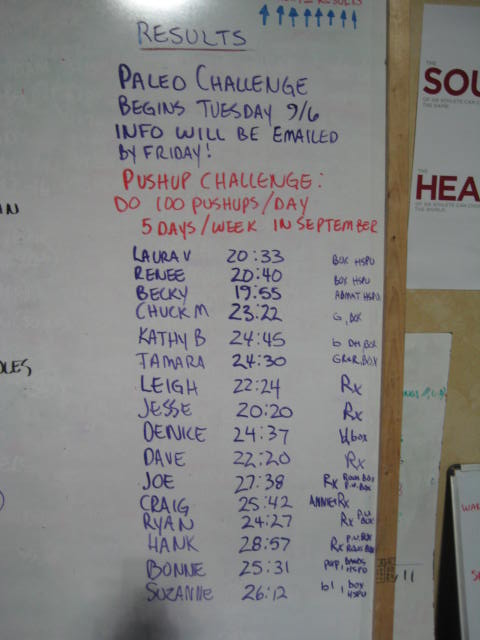 RESULTS
PALEO CHALLENGE
BEGINS TUESDAY 9/6
INFO WILL BE EMAILED
BY FRIDAY!
PUSHUP CHALLENGE:
DO 100 PUSHUPS/DAY
5 DAYS/WEEK IN SEPTEMBER
LAURA V 20:33 BOX HSPU
RENEE 20:40 BOX HSPU
BECKY 19:55 ABMAT HSPU
CHUCK M 23:22 G, BOX
KATHY B 24:45 BOX
TAMARA 24:30 BOX
LEIGH 22:24 Rx
JESSE 20:20 Rx
DENICE 24:37 box
DAVE 22:20 Rx
JOE 27:38 Rx
CRAIG 25:42 ANNIE Rx
RYAN 24:27 Rx P.U. BOX
HANK 28:57 Rx
BONNE 25:31 PUP, BANDS, HSPU
SUZANNE 26:12 bl, box HSPU
THE
SOU
OF AN ATHLETE CAN
THE
HEA